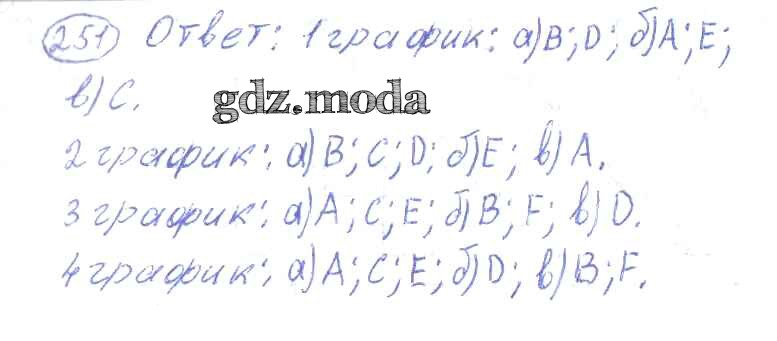 251 Ответ: 1 график: а) B; D; б) A; E;
в) C.
gdz.moda
2 график: а) B; C; D; б) E; в) A.
3 график: а) A; C; E; б) B; F; в) D.
4 график: а) A; C; E; б) D; в) B; F.